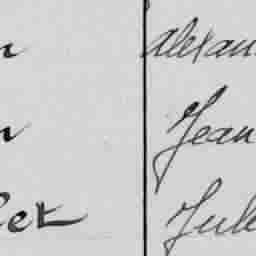 n alexan
n Jean
let Jule